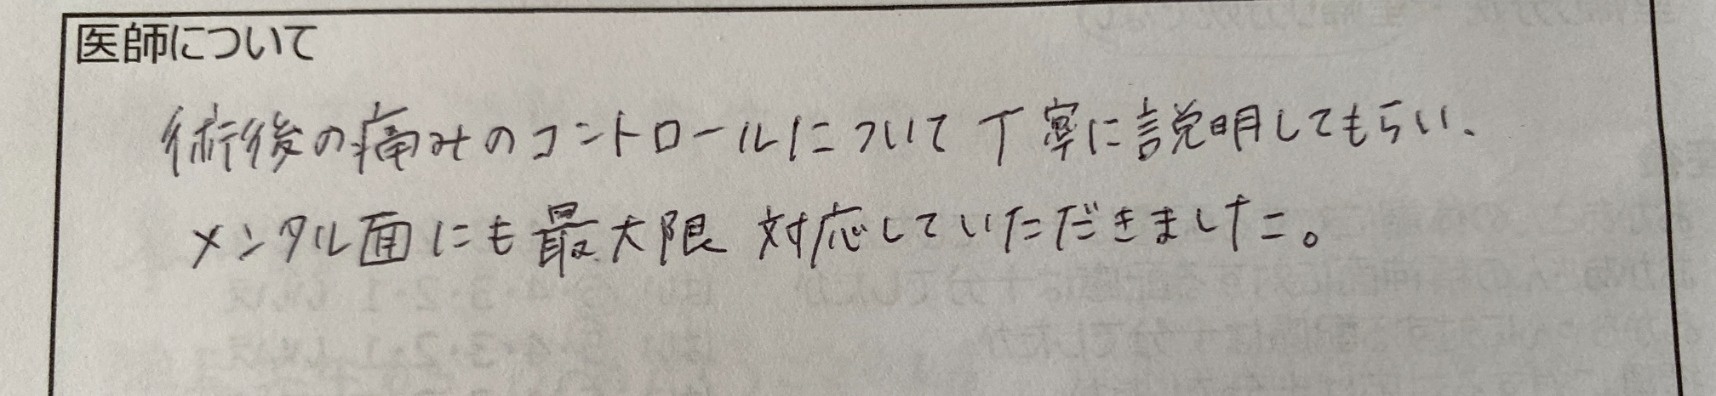 医師について
術後の痛みのコントロールについて丁寧に説明してもらい、
メンタル面にも最大限対応していただきました。